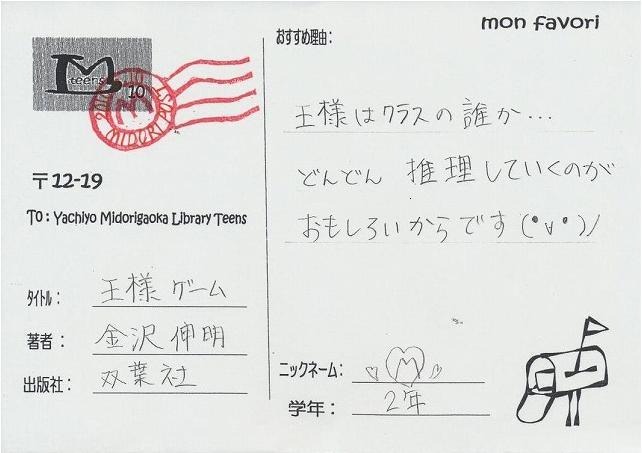 mon favori
M teens 10
MIDORI POST
〒12-19
To : Yachiyo Midorigaoka Library Teens
タイトル： 王様ゲーム
著者： 金沢伸明
出版社： 双葉社
おすすめ理由：
王様はクラスの誰か…
どんどん 推理していくのが
おもしろいからです(•∨•)/
ニックネーム： ♡M♡
学年： 2年